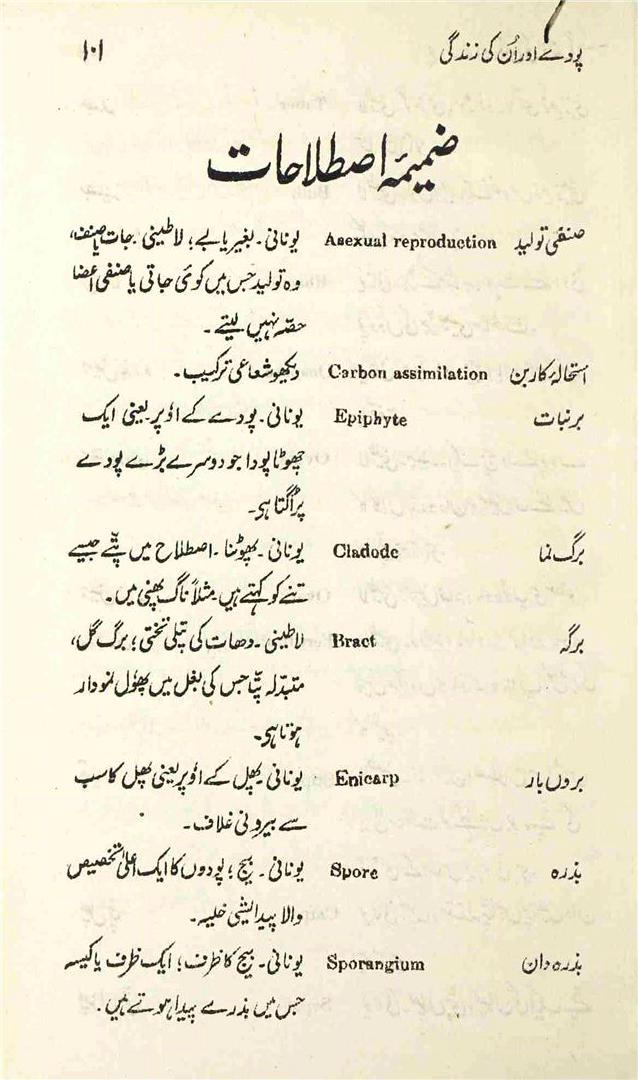 پودے اور اُن کی زندگی ۱۰۱
ضمیمۂ اصطلاحات
صنفی تولید Asexual reproduction یونانی۔ بغیر یا بے؛ لاطینی۔ جات یا صنف،
وہ تولید جس میں کوئی جاتی یا صنفی اعضا
حصّہ نہیں لیتے۔
استحالۂ کاربن Carbon assimilation دیکھو شعاعی ترکیب۔
برنبات Epiphyte یونانی۔ پودے کے اوٗپر یعنی ایک
چھوٹا پودا جو دوسرے بڑے پودے
پر اُگتا ہی۔
برگ نما Cladode یونانی۔ پھوٹنا۔ اصطلاح میں پتّے جیسے
تنے کو کہتے ہیں مثلاً ناگ پھنی میں۔
برگہ Bract لاطینی۔ دھات کی پتلی تختی؛ برگ گل،
متبدّلہ پتّا جس کی بغل میں پھوٗل نمودار
ہوتا ہی۔
بروں بار Enicarp یونانی۔ پھل کے اوٗپر یعنی پھل کا سب
سے بیرونی غلاف۔
بذرہ Spore یونانی۔ بیج؛ پودوں کا ایک اعلیٰ تخصیص
والا پیدایشی خلیہ۔
بذرہ دان Sporangium یونانی۔ بیج کا ظرف؛ ایک ظرف یا کیسہ
جس میں بذرے پیدا ہوتے ہیں۔